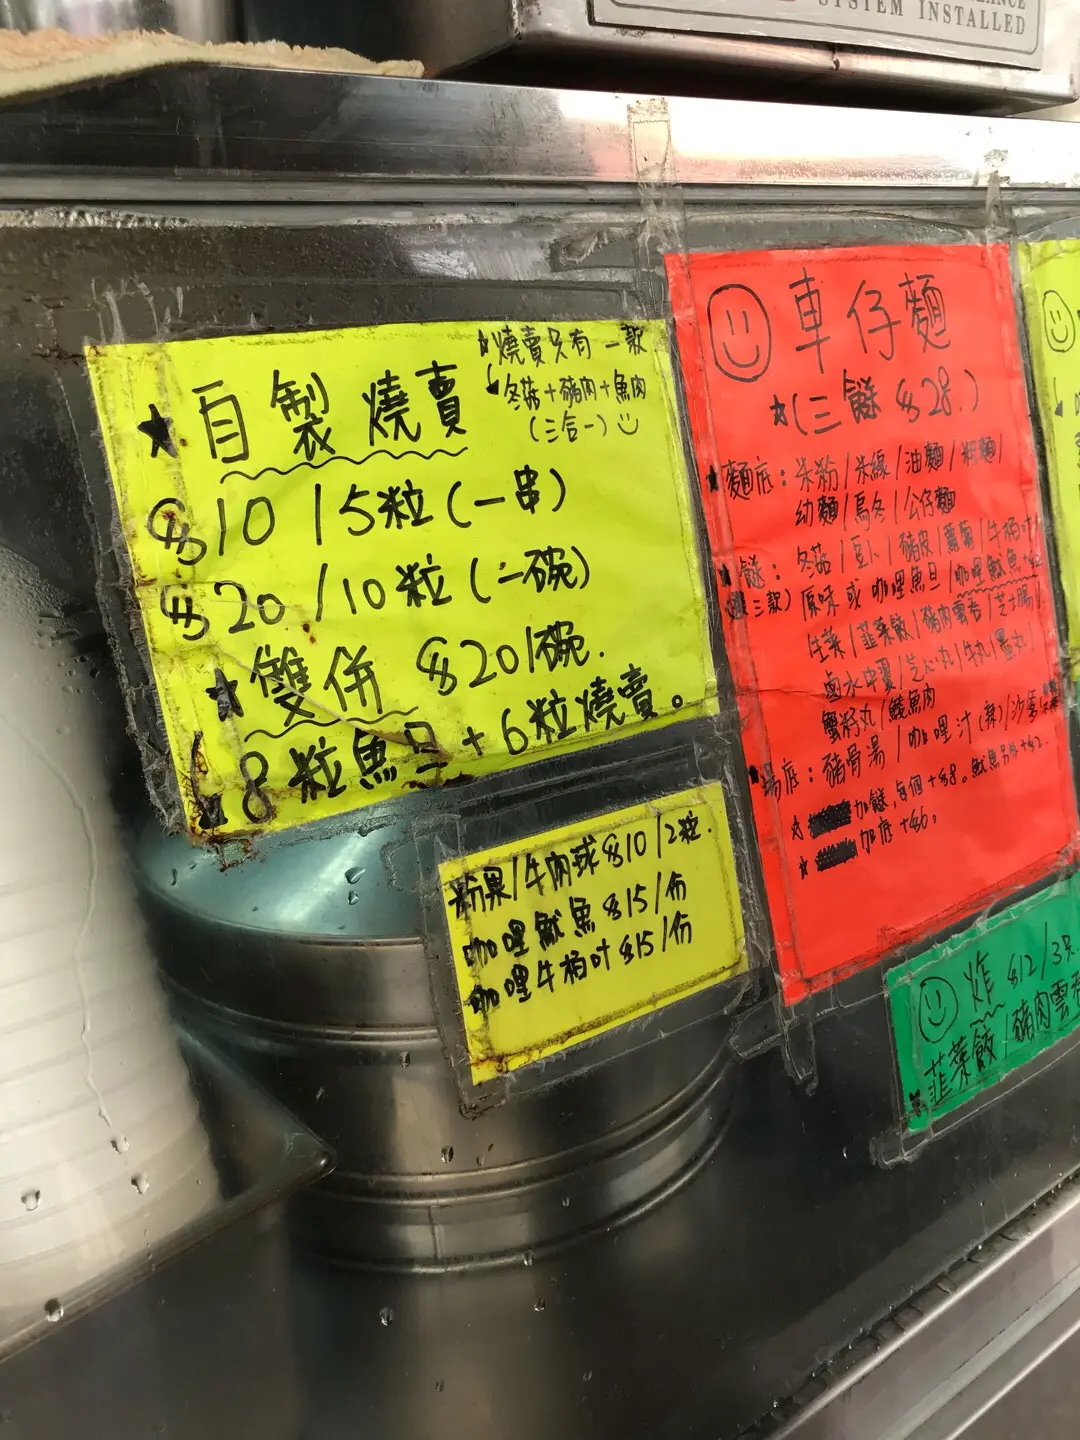 SYSTEM INSTALLED
★自製燒賣
★燒賣只有一款
冬菇+豬肉+魚肉
(三合一)
$10/5粒(一串)
$20/10粒(一碗)
★雙併 $20/碗.
8粒魚旦+6粒燒賣。
粉果/牛肉球$10/2粒.
咖哩魷魚$15/份
咖哩牛柏叶$15/份
車仔麵
★(三餸$28.)
★麵底:米粉/米線/油麵/粗麵/
幼麵/烏冬/公仔麵
★餸:冬菇/豆卜/豬皮/蘿蔔/牛柏叶/
三款)原味或咖哩魚旦/咖哩魷魚+$2
生菜/韮菜餃/豬肉雲吞/芝士腸/
鹵水中翼/芝心丸/牛丸/墨丸/
蟹籽丸/鯪魚肉
湯底:豬骨湯/咖哩汁(辣)/沙嗲
☆加餸,每個+$8。魷魚另外+$2.
☆加底+$6。
炸 $12/3只
韮菜餃/豬肉雲吞